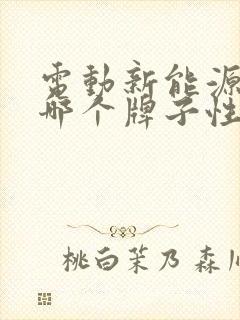 電動新能源
哪个牌子性
桃白茉乃 森川